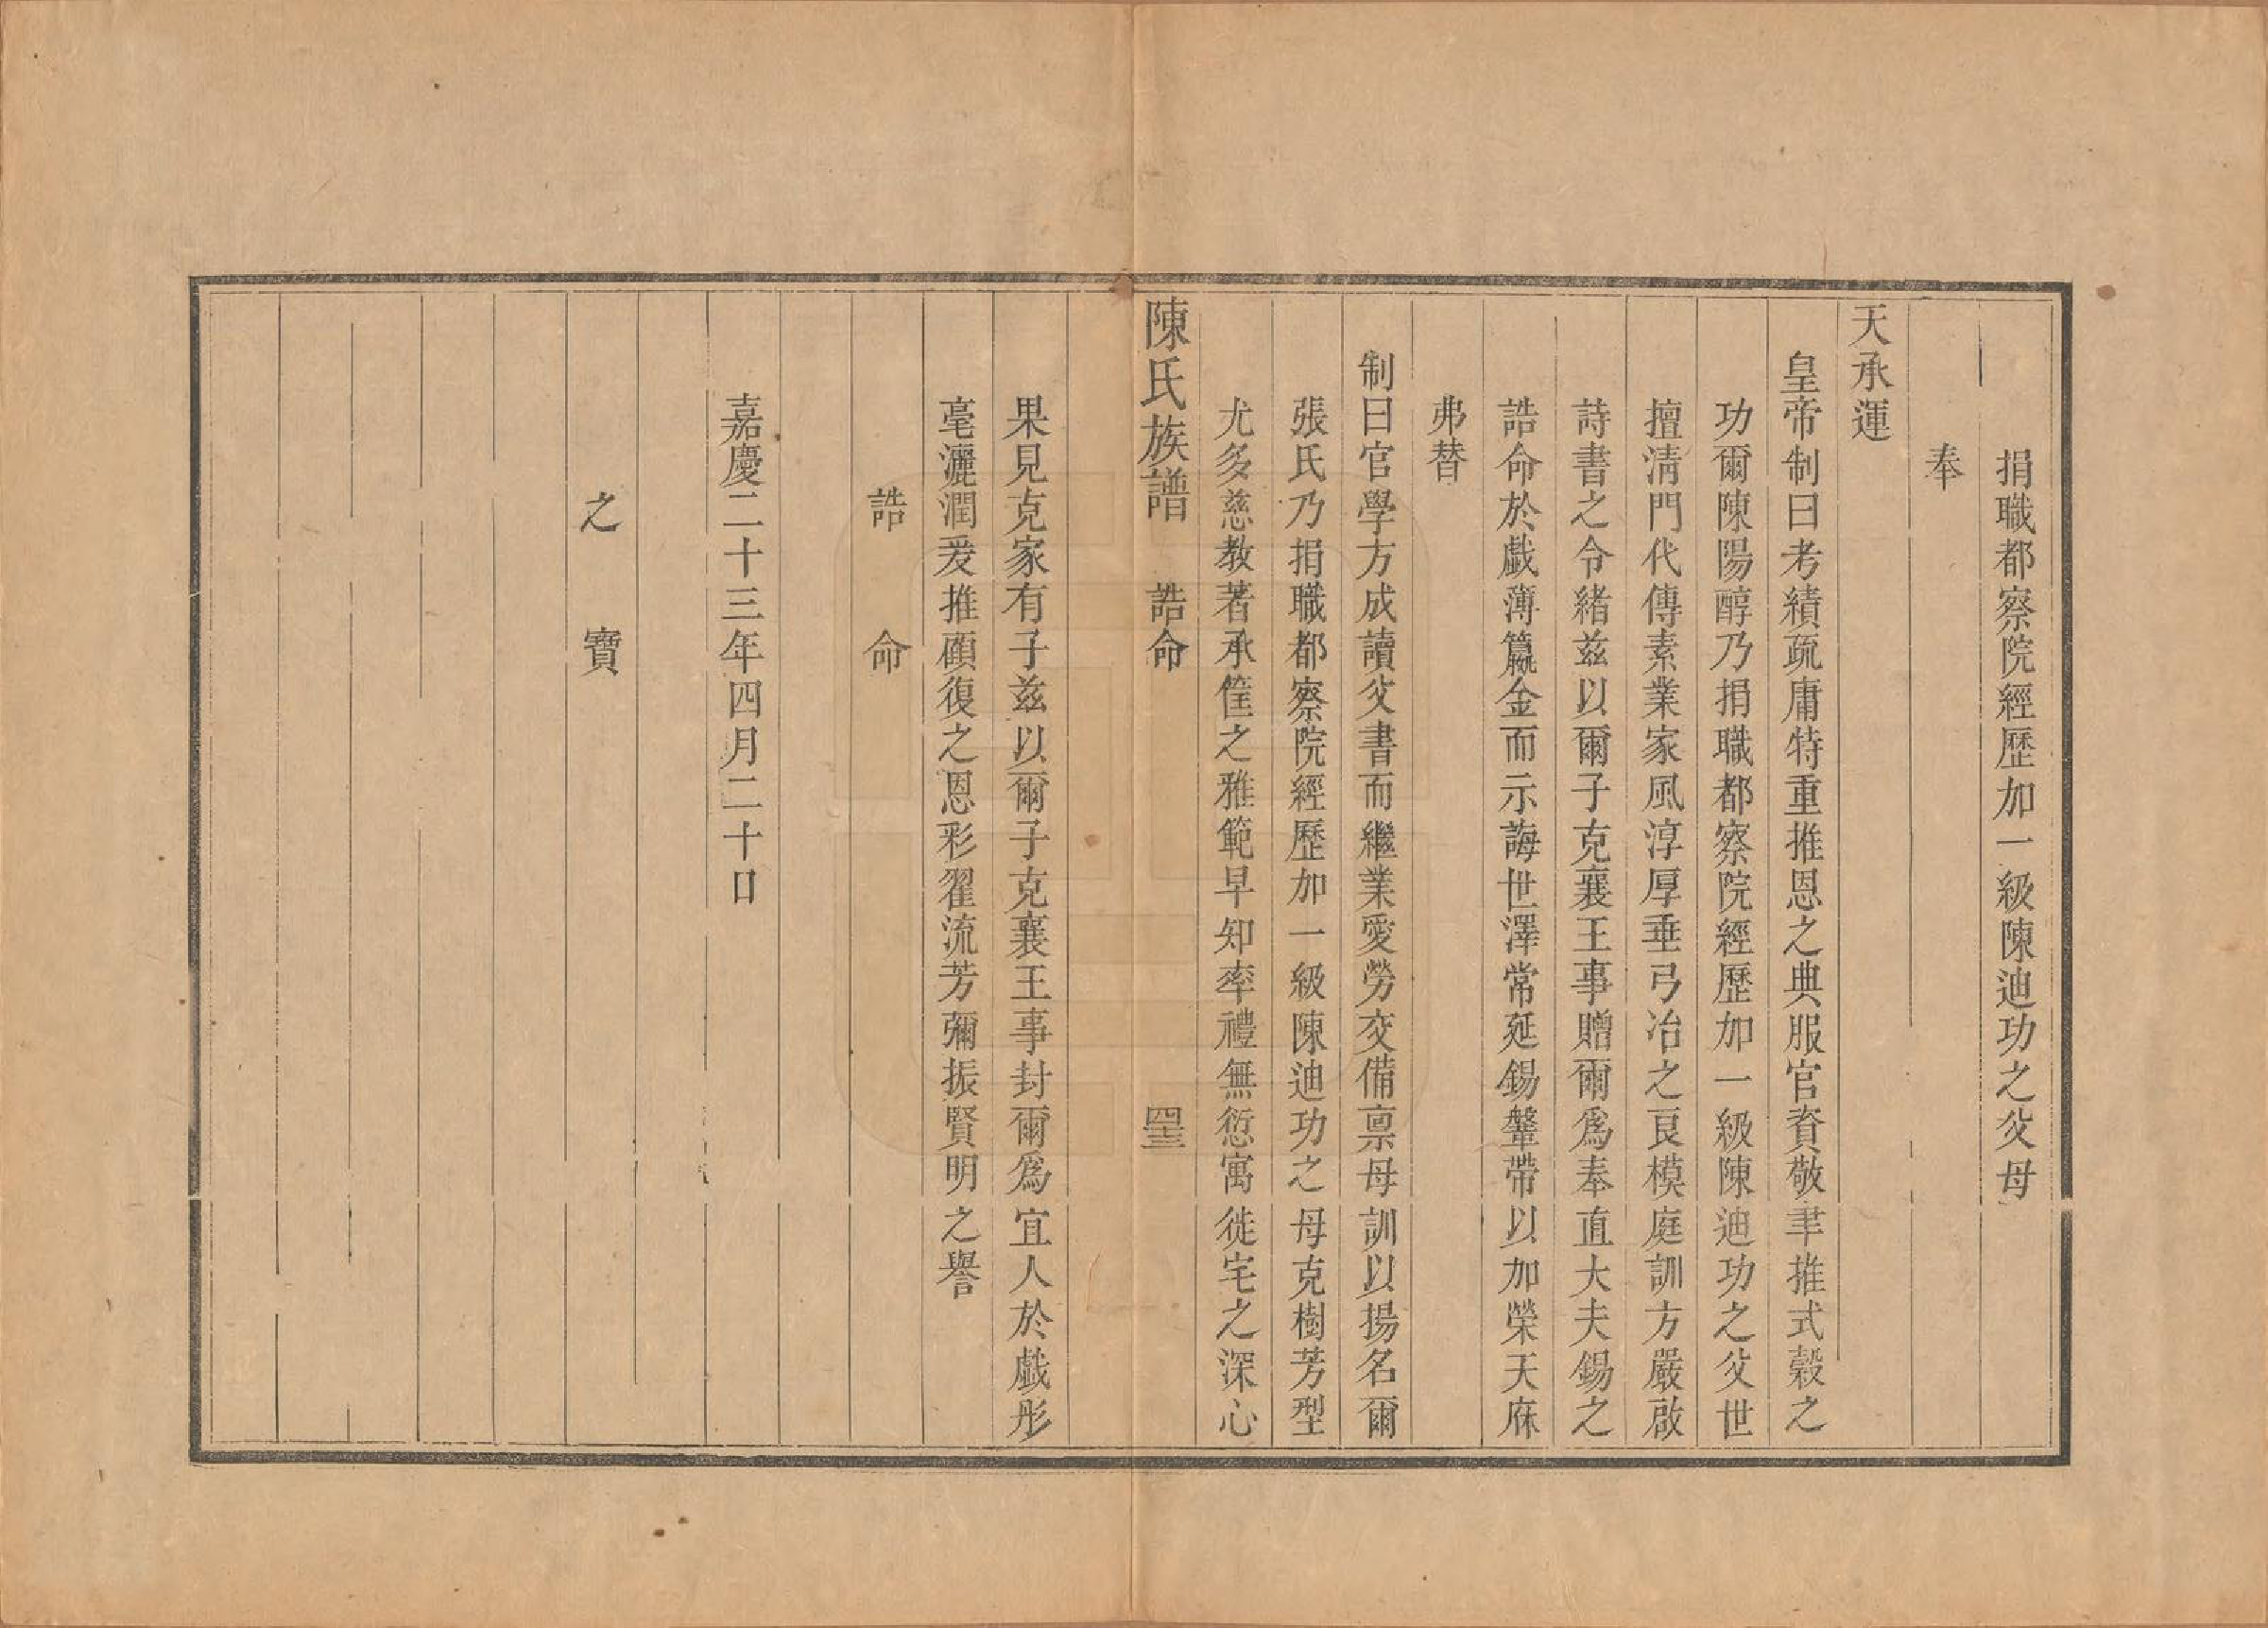 捐職都察院經歷加一級陳迪功之父母
奉
天承運
皇帝制曰考績疏庸特重推恩之典服官資敬聿推式穀之
功爾陳陽醇乃捐職都察院經歷加一級陳迪功之父世
擅淸門代傳素業家風淳厚垂弓冶之良模庭訓方嚴啟
詩書之令緒兹以爾子克襄王事贈爾爲奉直大夫錫之
誥命於戲薄籯金而示誨世澤常延錫鞶帶以加榮天庥
弗替
制曰官學方成讀父書而繼業愛勞交備禀母訓以揚名爾
張氏乃捐職都察院經歷加一級陳迪功之母克樹芳型
尤多慈教著承筐之雅範早知率禮無愆寓徙宅之深心
陳氏族譜 誥命 四三
果見克家有子兹以爾子克襄王事封爾爲宜人於戲彤
毫灑潤爰推顧復之恩彩翟流芳彌振賢明之譽
誥命
嘉慶二十三年四月二十日
之寶